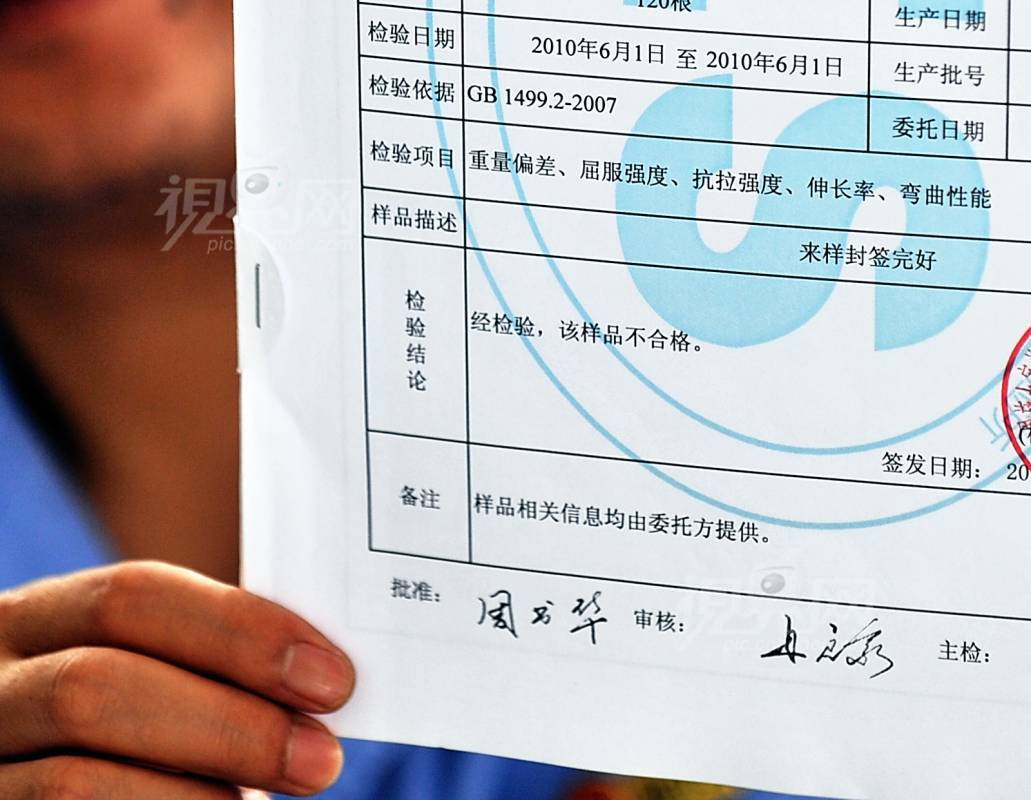 120根
生产日期
检验日期 2010年6月1日 至 2010年6月1日 生产批号
检验依据 GB 1499.2-2007 委托日期
检验项目 重量偏差、屈服强度、抗拉强度、伸长率、弯曲性能
样品描述 来样封签完好
检验结论 经检验，该样品不合格。
签发日期： 20
备注 样品相关信息均由委托方提供。
批准： 审核： 主检：
視界网